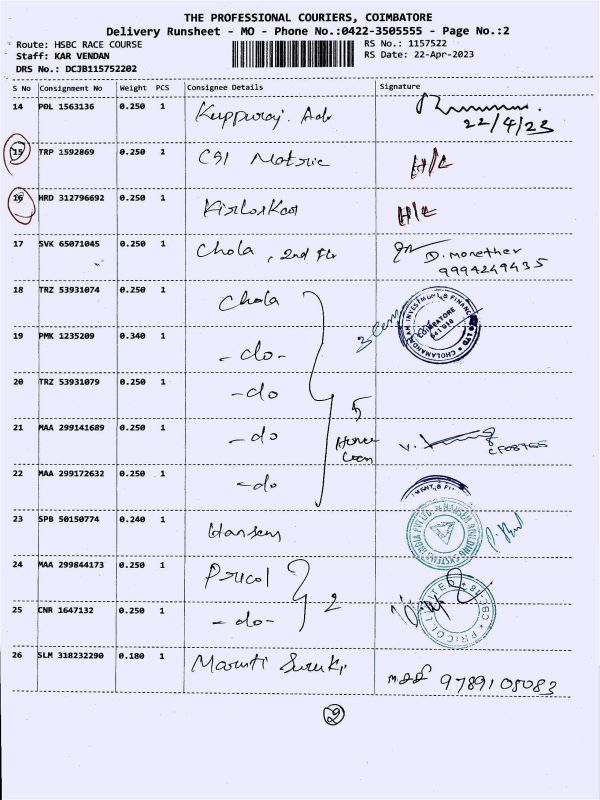 THE PROFESSIONAL COURIERS, COIMBATORE
Delivery Runsheet - MO - Phone No.:0422-3505555 - Page No.:2
Route: HSBC RACE COURSE
RS No.: 1157522
Staff: KAR VENDAN
RS Date: 22-Apr-2023
DRS No.: DCJB115752202
S No Consignment No Weight PCS Consignee Details Signature
14 POL 1563136 0.250 1 Kuppuraj. Adv
22/4/23
15 TRP 1592869 0.250 1 CSI Matric H/C
16 HRD 312796692 0.250 1 Kirloskar H/C
17 SVK 65071045 0.250 1 Chola, 2nd Flr D. Monether
9994249435
18 TRZ 53931074 0.250 1 Chola
CHOLAMANDALAM INVESTMENT & FINANCE CO LTD
COIMBATORE
641018
19 PMK 1235209 0.340 1 -do-
20 TRZ 53931079 0.250 1 -do
5
21 MAA 299141689 0.250 1 -do
CF08765
22 MAA 299172632 0.250 1 -do
MENT & FI
23 SPB 50150774 0.240 1 Hansen
HANSEN BUILDING SYSTEMS INDIA PVT LTD
24 MAA 299844173 0.250 1 Pricol
2
25 CNR 1647132 0.250 1 -do-
PRICOL LIMITED
26 SLM 318232290 0.180 1 Maruti Suzuki 9789105083
2